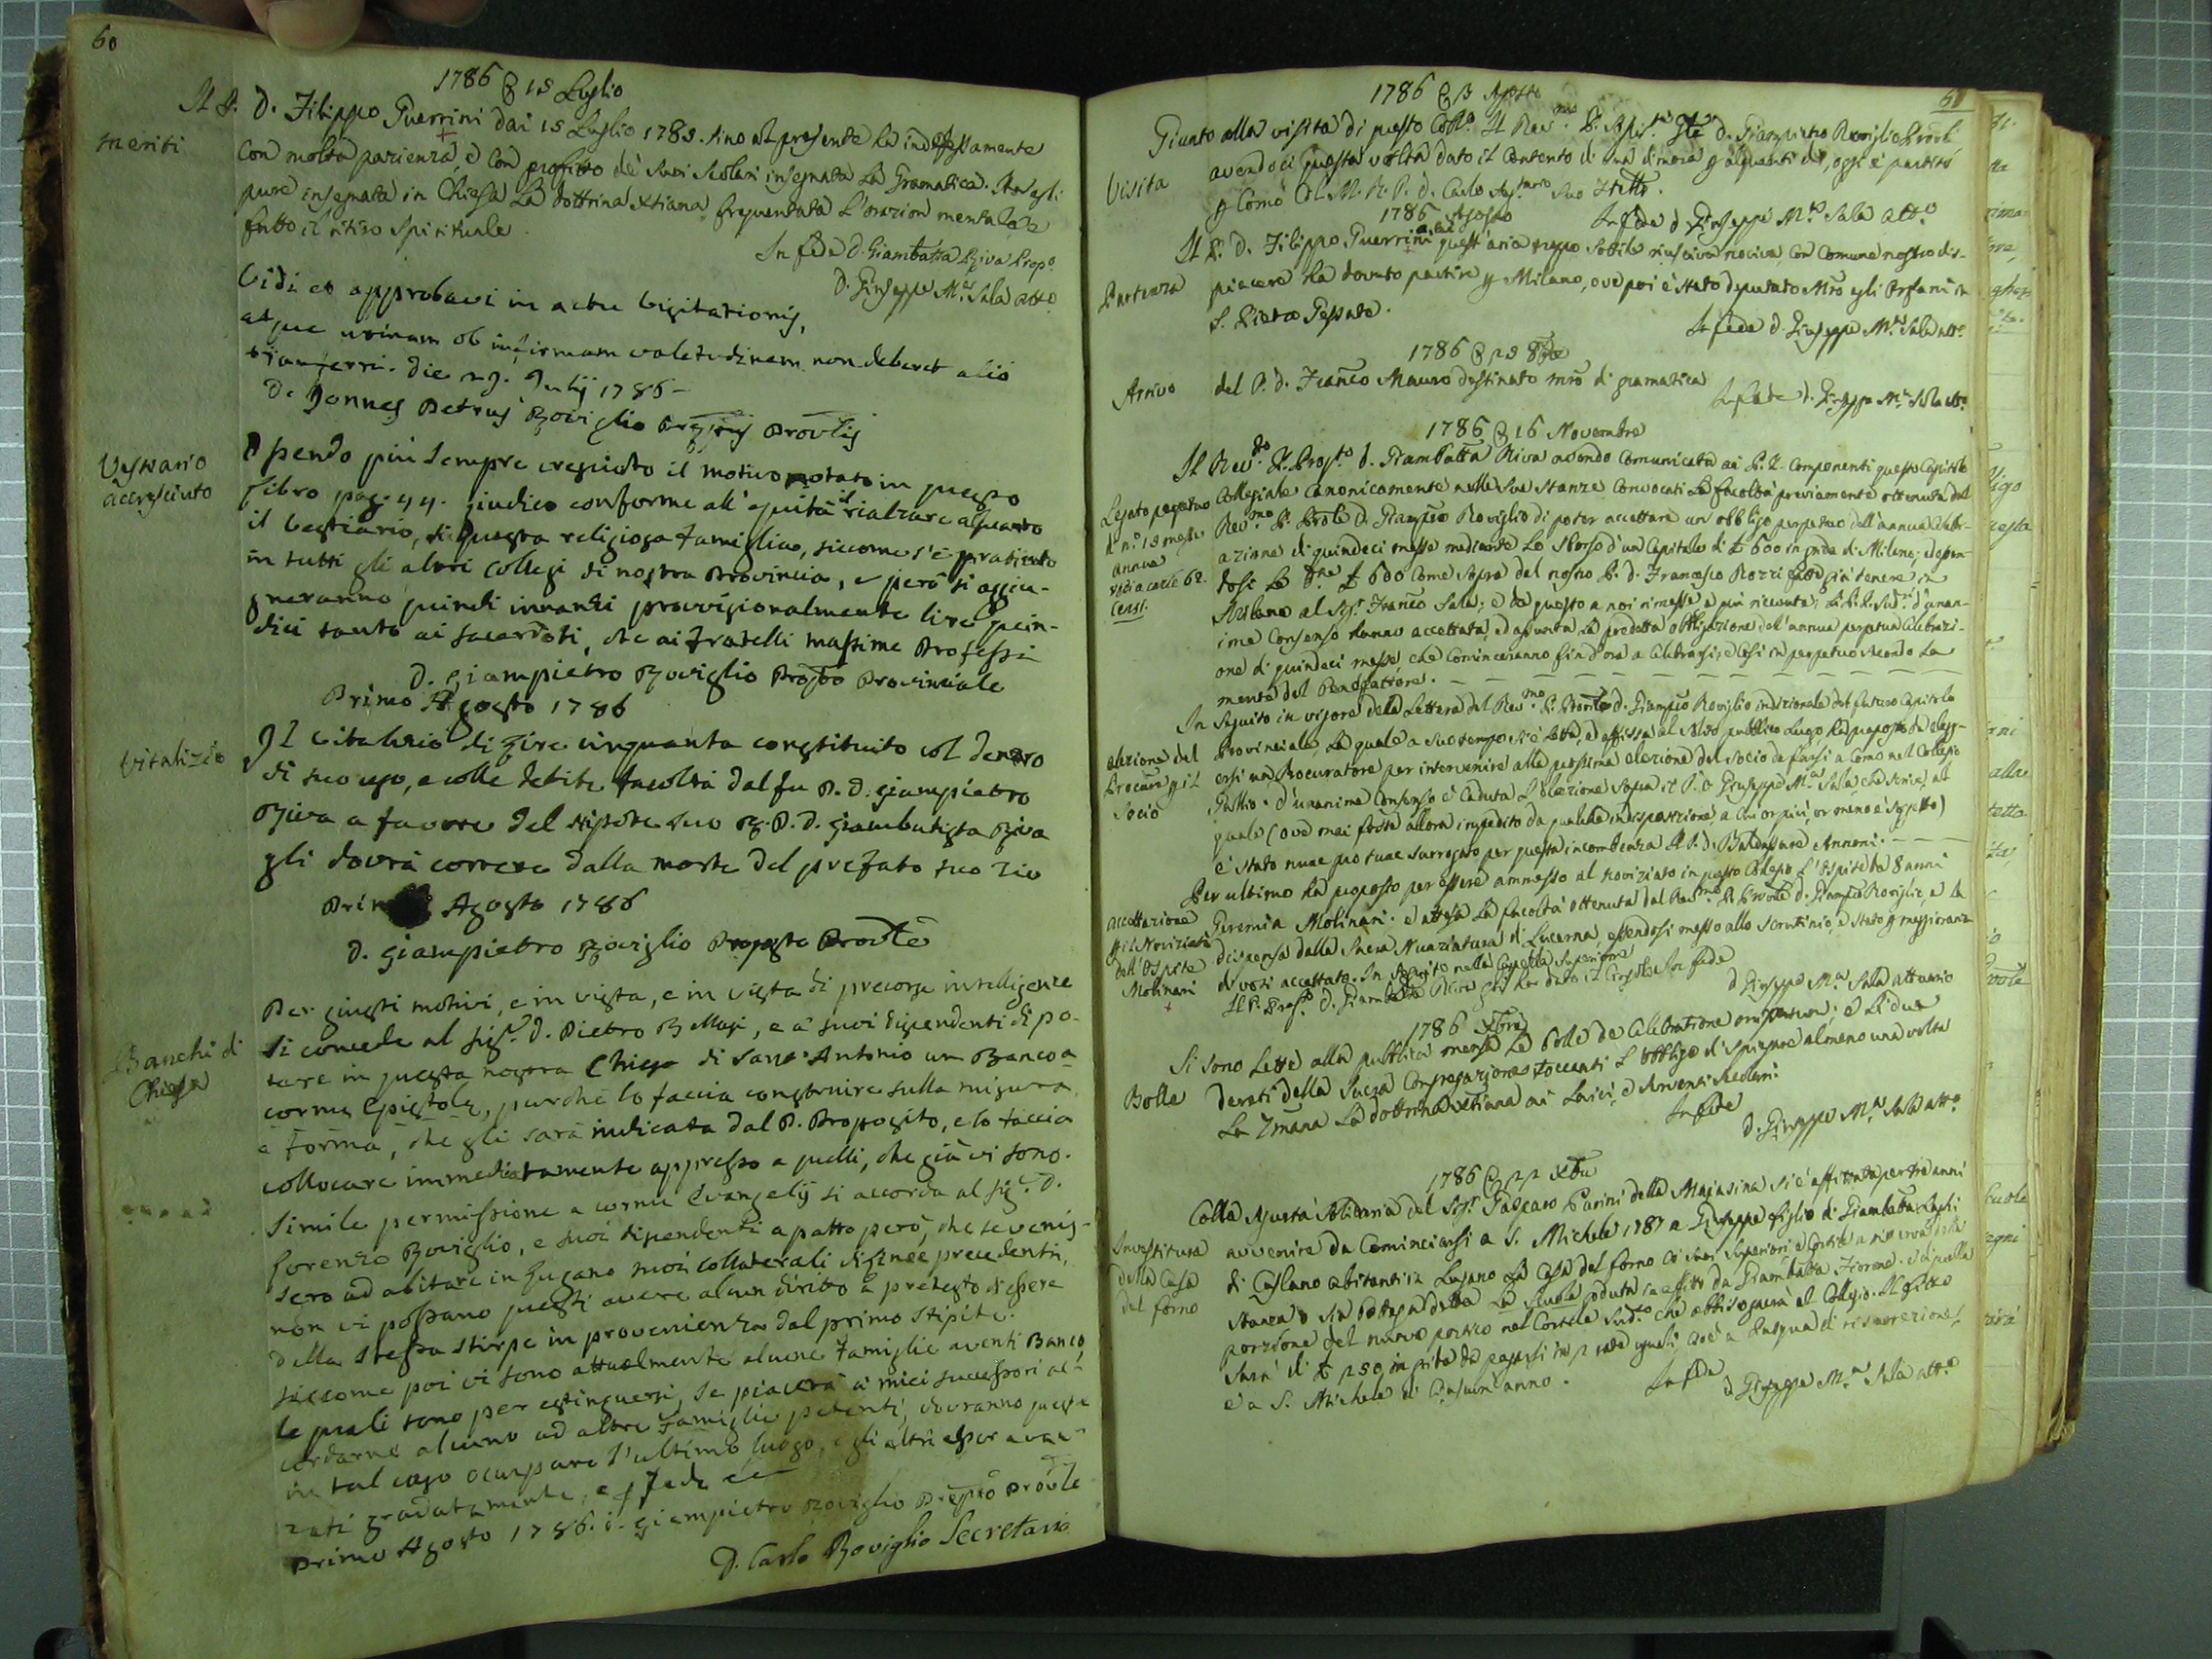 60
1786 @ 15 Luglio
meriti
Il P. D. Filippo Guerrini dai 15 Luglio 1785. sino al presente ha indefessamente
con molta pazienza, e con profitto de' suoi scolari insegnata la Gramatica. Ha egli
pure insegnata in Chiesa la dottrina Xtiana, frequentata l'orazion mentale, e
fatto il ritiro spirituale.
In fede D. Giambatta Riva Propo.
D. Giuseppe Ma. Sala Atto.
Vidi et approbavi in actu Visitationis,
atque utinam ob infirmam valetudinem non deberet alio
transferri. Die 29. Julij 1786 -
D. Joannes Petrus Roviglio Prpositus Provlis
Vestiario
accresciuto
Essendo più sempre cresciuto il motivo notato in questo
Libro pag. 44. giudico conforme all' equità il rialzare alquanto
il vestiario di questa religiosa famiglia, siccome s'è praticato
in tutti gli altri Collegi di nostra Provincia, e però si aggiu-
gneranno quindi innanzi provvisionalmente lire quin-
dici tanto ai Sacerdoti, che ai Fratelli massime Professi
D. Giampietro Roviglio Propto Provinciale
Primo Agosto 1786
Vitalizio
Il Vitalizio di Lire cinquanta constituito col denaro
di suo uso, e colle debite facoltà dal fu P. D. Giampietro
Riva a favore del Nipote suo R. P. D. Giambatista Riva
gli dovrà correre dalla morte del prefato suo Zio
Primo Agosto 1786
D. Giampietro Roviglio Preposto Provle
Banchi di
Chiesa
Per giusti motivi, e in vista, e in vista di precorse intelligenze
si concede al Sigr. D. Pietro Bellasi, e a' suoi dipendenti di po-
tere in questa nostra Chiesa di Sant' Antonio un Banco a
cornu Epistolæ, purchè lo faccia construire sulla misura
e forma, che gli sarà indicata dal P. Proposito, e lo faccia
collocare immediatamente appresso a quelli, che già vi sono.
Simile permissione a cornu Evangelij si accorda al Sigr. D.
Lorenzo Roviglio, e suoi dipendenti a patto però, che se venis-
sero ad abitare in Lugano suoi collaterali di linee precedenti,
non vi possano questi avere alcun diritto a pretesto di essere
della stessa stirpe in provenienza dal primo stipite.
Siccome poi vi sono attualmente alcune Famiglie aventi Banco,
le quali sono per estinguersi, se piacerà a' miei successori ac-
cordarne alcuno ad altre Famiglie petenti, dovranno queste
in tal caso occupare l'ultimo luogo, e gli altri esser avan-
zati gradatamente, e p fede
Primo Agosto 1786. D. Giampietro Roviglio Prepto Provle
D. Carlo Roviglio Secretario
61
1786 @ 3 Agosto
Visita
Giunto alla visita di questo Collo. Il Revmo. P. D. Giampietro Roviglio Provle
avendoci questa volta dato il contento di sua dimora p alquanti dì, oggi è partito
p Como col M. R. P. D. Carlo Segretario suo Frello.
In fede D. Giuseppe Ma. Sala Atto.
1786 Agosto
Partenza
Il P. D. Filippo Guerrini a cui quest'aria troppo sottile riusciva nociva con comune nostro dis-
piacere ha dovuto partire p Milano, ove poi è stato deputato Mro egli Orfani in
S. Pietro Gessate.
In fede D. Giuseppe Ma. Sala Atto.
1786 @ 25 8bre
Arrivo
del P. D. Franco Mauro destinato mro di gramatica
In fede D. Giuseppe Ma. Sala Atto.
1786 @ 16 Novembre
Legato perpetuo
di no. 15 messe
annue
vedi a carte 62.
Censi.
Il Revdo. P. Propto. D. Giambatta Riva avendo comunicata ai P. P. componenti questo Capitolo
Collegiale canonicamente nelle sue stanze convocati la facoltà previamente ottenuta dal
Revmo. P. Provle D. Giampro Roviglio di poter accettare un obbligo perpetuo dell'annua celebr-
azione di quindeci messe mediante lo sborso d'un Capitale di £ 600 in grida di Milano; ed essen-
dosi le dtte £ 600 come sopra dal nostro P. D. Francesco Rozzi fatte già tenere in
Milano al Sigr. Franco Sala; e da questo a noi rimesse, e qui ricevute; Li P. P. Sudi. d'unan-
ime consenso hanno accettata, ed assunta la predetta obbligazione dell'annua perpetua celebrazi-
one di quindeci messe, che cominceranno fin d'ora a celebrarsi; e così in perpetuo secondo la
mente del Benefattore.
elezione del
Procure p il
Socio
In seguito in vigore della Lettera del Revmo. P. Provle D. Giampro Roviglio indizionale del futuro Capitolo
Provinciale, la quale a suo tempo si è letta, ed affissa al solito pubblico luogo, ha proposto da elegg-
ersi un Procuratore per intervenire alla prossima elezione del Socio da farsi a Como nel Collegio
Gallio. d'unanime consenso è caduta l'elezione sopra il P. D. Giuseppe Ma. Sala, che scrive, al
quale (ove mai fosse allora impedito da qualche indisposizione a cui or più, or meno è soggetto)
è stato nunc pro tunc surrogato per questa incombenza il P. D. Baldassare Annoni.
accettazione
p il Noviziato
dell' Ospite
Molinari
Per ultimo ha proposto per essere ammesso al noviziato in questo Collegio l'Ospite da 8 anni
Geremia Molinari. e attesa la facoltà ottenuta dal Revmo. P. Provle D. Giampro Roviglio, e la
dispensa dalla Sacra Nunziatura di Lucerna, essendosi messo allo scrutinio, è stato p maggioranza
di voti accettato. In seguito nella Cappella Superiore
Il P. Propto. D. Giambatta Riva gli ha dato il Cingolo. In fede
D. Giuseppe Ma. Sala attuario
1786 Xbre
Bolle
Si sono lette alla pubblica mensa le Bolle de Celebratione missarum; e li due
decreti della Sacra Congregazione toccanti l'obbligo di spiegare almeno una volta
la 7mana la dottrina Xtiana ai Laici, e serventi secolari.
In fede
D. Giuseppe Ma. Sala atto.
1786 @ 22 Xbre
Investitura
della Casa
del forno
Colla sigurtà solidaria del Sigr. Gaspare Parini della Magasina si è affittata per tre anni
avvenire da cominciarsi a S. Michele 1787 a Giuseppe figlio di Giambatta
di Caslano abitanti in Lugano la Casa del forno co' suoi superiori, e Corte a riserva della
stanza o sia bottega detta la scuola goduta in affitto da Giambatta Fiorone. e di quella
porzione del nuovo portico nel Cortile Sudo. che abbisognerà al Collegio. Il fitto
sarà di £ 250 in grida da pagarsi in 2 rate uguali, cioè a Pasqua di risurrezione,
e a S. Michele di ciascun'anno.
In fede
D. Giuseppe Ma. Sala atto.